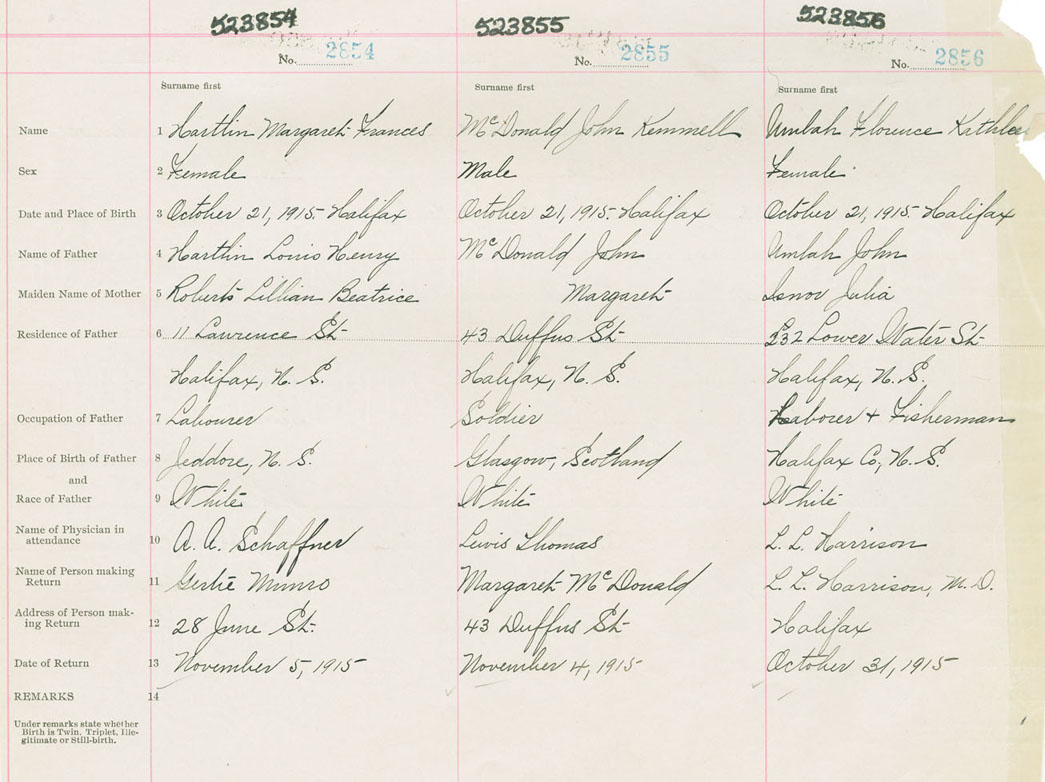 523854 523855 523856
No. 2854 No. 2855 No. 2856
Surname first Surname first Surname first
Name 1 Hartlin Margaret Frances McDonald John Kemmell Umlah Florence Kathlee
Sex 2 Female Male Female
Date and Place of Birth 3 October 21, 1915 Halifax October 21, 1915. Halifax October 21, 1915 Halifax
Name of Father 4 Hartlin Louis Henry McDonald John Umlah John
Maiden Name of Mother 5 Roberts Lillian Beatrice Margaret Isnor Julia
Residence of Father 6 11 Lawrence St 43 Duffus St 232 Lower Water St
Halifax, N. S. Halifax, N. S. Halifax, N. S.
Occupation of Father 7 Labourer Soldier Laborer + Fisherman
Place of Birth of Father 8 Jeddore, N. S. Glasgow, Scotland Halifax Co, N. S.
and
Race of Father 9 White White White
Name of Physician in
attendance 10 A. A. Schaffner Lewis Thomas L. L. Harrison
Name of Person making
Return 11 Gertie Munro Margaret McDonald L. L. Harrison, M. D.
Address of Person mak-
ing Return 12 28 June St. 43 Duffus St Halifax
Date of Return 13 November 5, 1915 November 4, 1915 October 31, 1915
REMARKS 14
Under remarks state whether
Birth is Twin, Triplet, Ille-
gitimate or Still-birth.